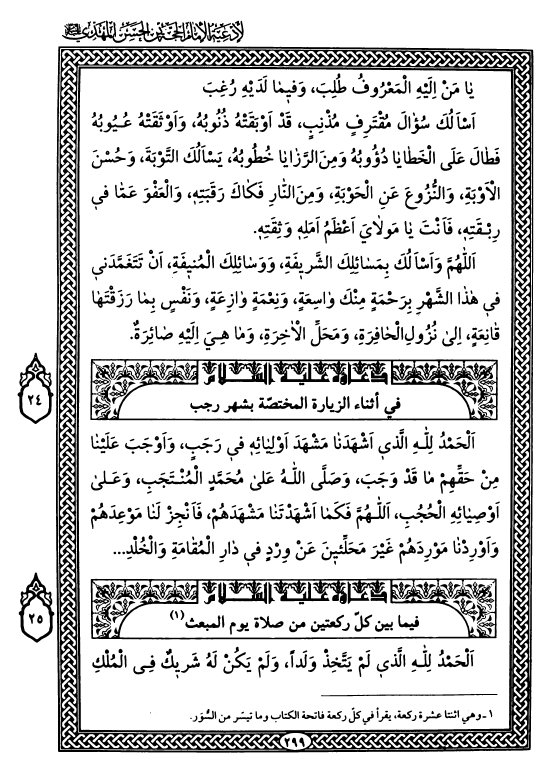 لأدعية الإمام الحجة بن الحسن المهدي
يا مَنْ اِلَيْهِ الْمَعْرُوفُ طُلِبَ، وَفيما لَدَيْهِ رُغِبَ
اَسْاَلُكَ سُؤالَ مُقْتَرِفٍ مُذْنِبٍ، قَدْ اَوْبَقَتْهُ ذُنُوبُهُ، وَاَوْثَقَتْهُ عُيُوبُهُ
فَطالَ عَلَى الْخَطايا دُؤُوبُهُ وَمِنَ الرَّزايا خُطُوبُهُ، يَسْاَلُكَ التَّوْبَةَ، وَحُسْنَ
الْاَوْبَةِ، وَالنُّزُوعَ عَنِ الْحَوْبَةِ، وَمِنَ النّارِ فَكاكَ رَقَبَتِهِ، وَالْعَفْوَ عَمّا في
رِبْقَتِهِ، فَاَنْتَ يا مَوْلايَ اَعْظَمُ اَمَلِهِ وَثِقَتِهِ.
اَللّهُمَّ وَاَسْاَلُكَ بِمَسائِلِكَ الشَّريفَةِ، وَوَسائِلِكَ الْمُنيفَةِ، اَنْ تَتَغَمَّدَني
في هٰذَا الشَّهْرِ بِرَحْمَةٍ مِنْكَ واسِعَةٍ، وَنِعْمَةٍ وازِعَةٍ، وَنَفْسٍ بِما رَزَقْتَها
قانِعَةٍ، اِلىٰ نُزُولِ الْحافِرَةِ، وَمَحَلِّ الْاٰخِرَةِ، وَما هِيَ اِلَيْهِ صائِرَةٌ.
٢٤
دعاؤه عليه السلام
في أثناء الزيارة المختصّة بشهر رجب
اَلْحَمْدُ لِلّٰهِ الَّذي اَشْهَدَنا مَشْهَدَ اَوْلِيائِهِ في رَجَبٍ، وَاَوْجَبَ عَلَيْنا
مِنْ حَقِّهِمْ ما قَدْ وَجَبَ، وَصَلَّى اللهُ عَلىٰ مُحَمَّدٍ الْمُنْتَجَبِ، وَعَلىٰ
اَوْصِيائِهِ الْحُجُبِ، اَللّٰهُمَّ فَكَما اَشْهَدْتَنا مَشْهَدَهُمْ، فَاَنْجِزْ لَنا مَوْعِدَهُمْ
وَاَوْرِدْنا مَوْرِدَهُمْ غَيْرَ مَحَلَّئينَ عَنْ وِرْدٍ في دارِ الْمُقامَةِ وَالْخُلْدِ...
٢٥
دعاؤه عليه السلام
فيما بين كلّ ركعتين من صلاة يوم المبعث (١)
اَلْحَمْدُ لِلّٰهِ الَّذي لَمْ يَتَّخِذْ وَلَداً، وَلَمْ يَكُنْ لَهُ شَريكٌ فِي الْمُلْكِ
١ ـ وهي اثنتا عشرة ركعة، يقرأ في كلّ ركعة فاتحة الكتاب وما تيسّر من السُّوَر.
٢٩٩